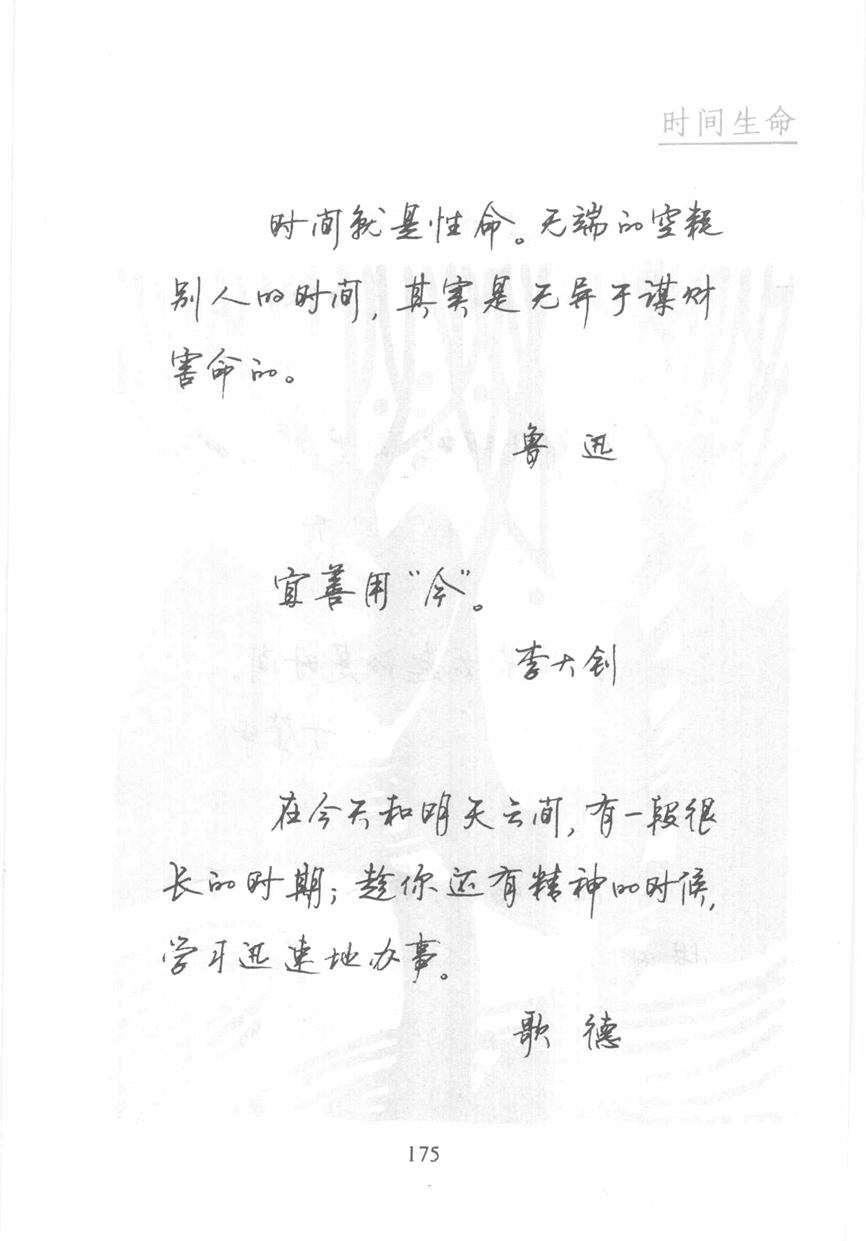 时间生命
时间就是性命。无端的空耗
别人的时间，其实是无异于谋财
害命的。
鲁迅
宜善用“今”。
李大钊
在今天和明天之间，有一段很
长的时期；趁你还有精神的时候，
学习迅速地办事。
歌德
175